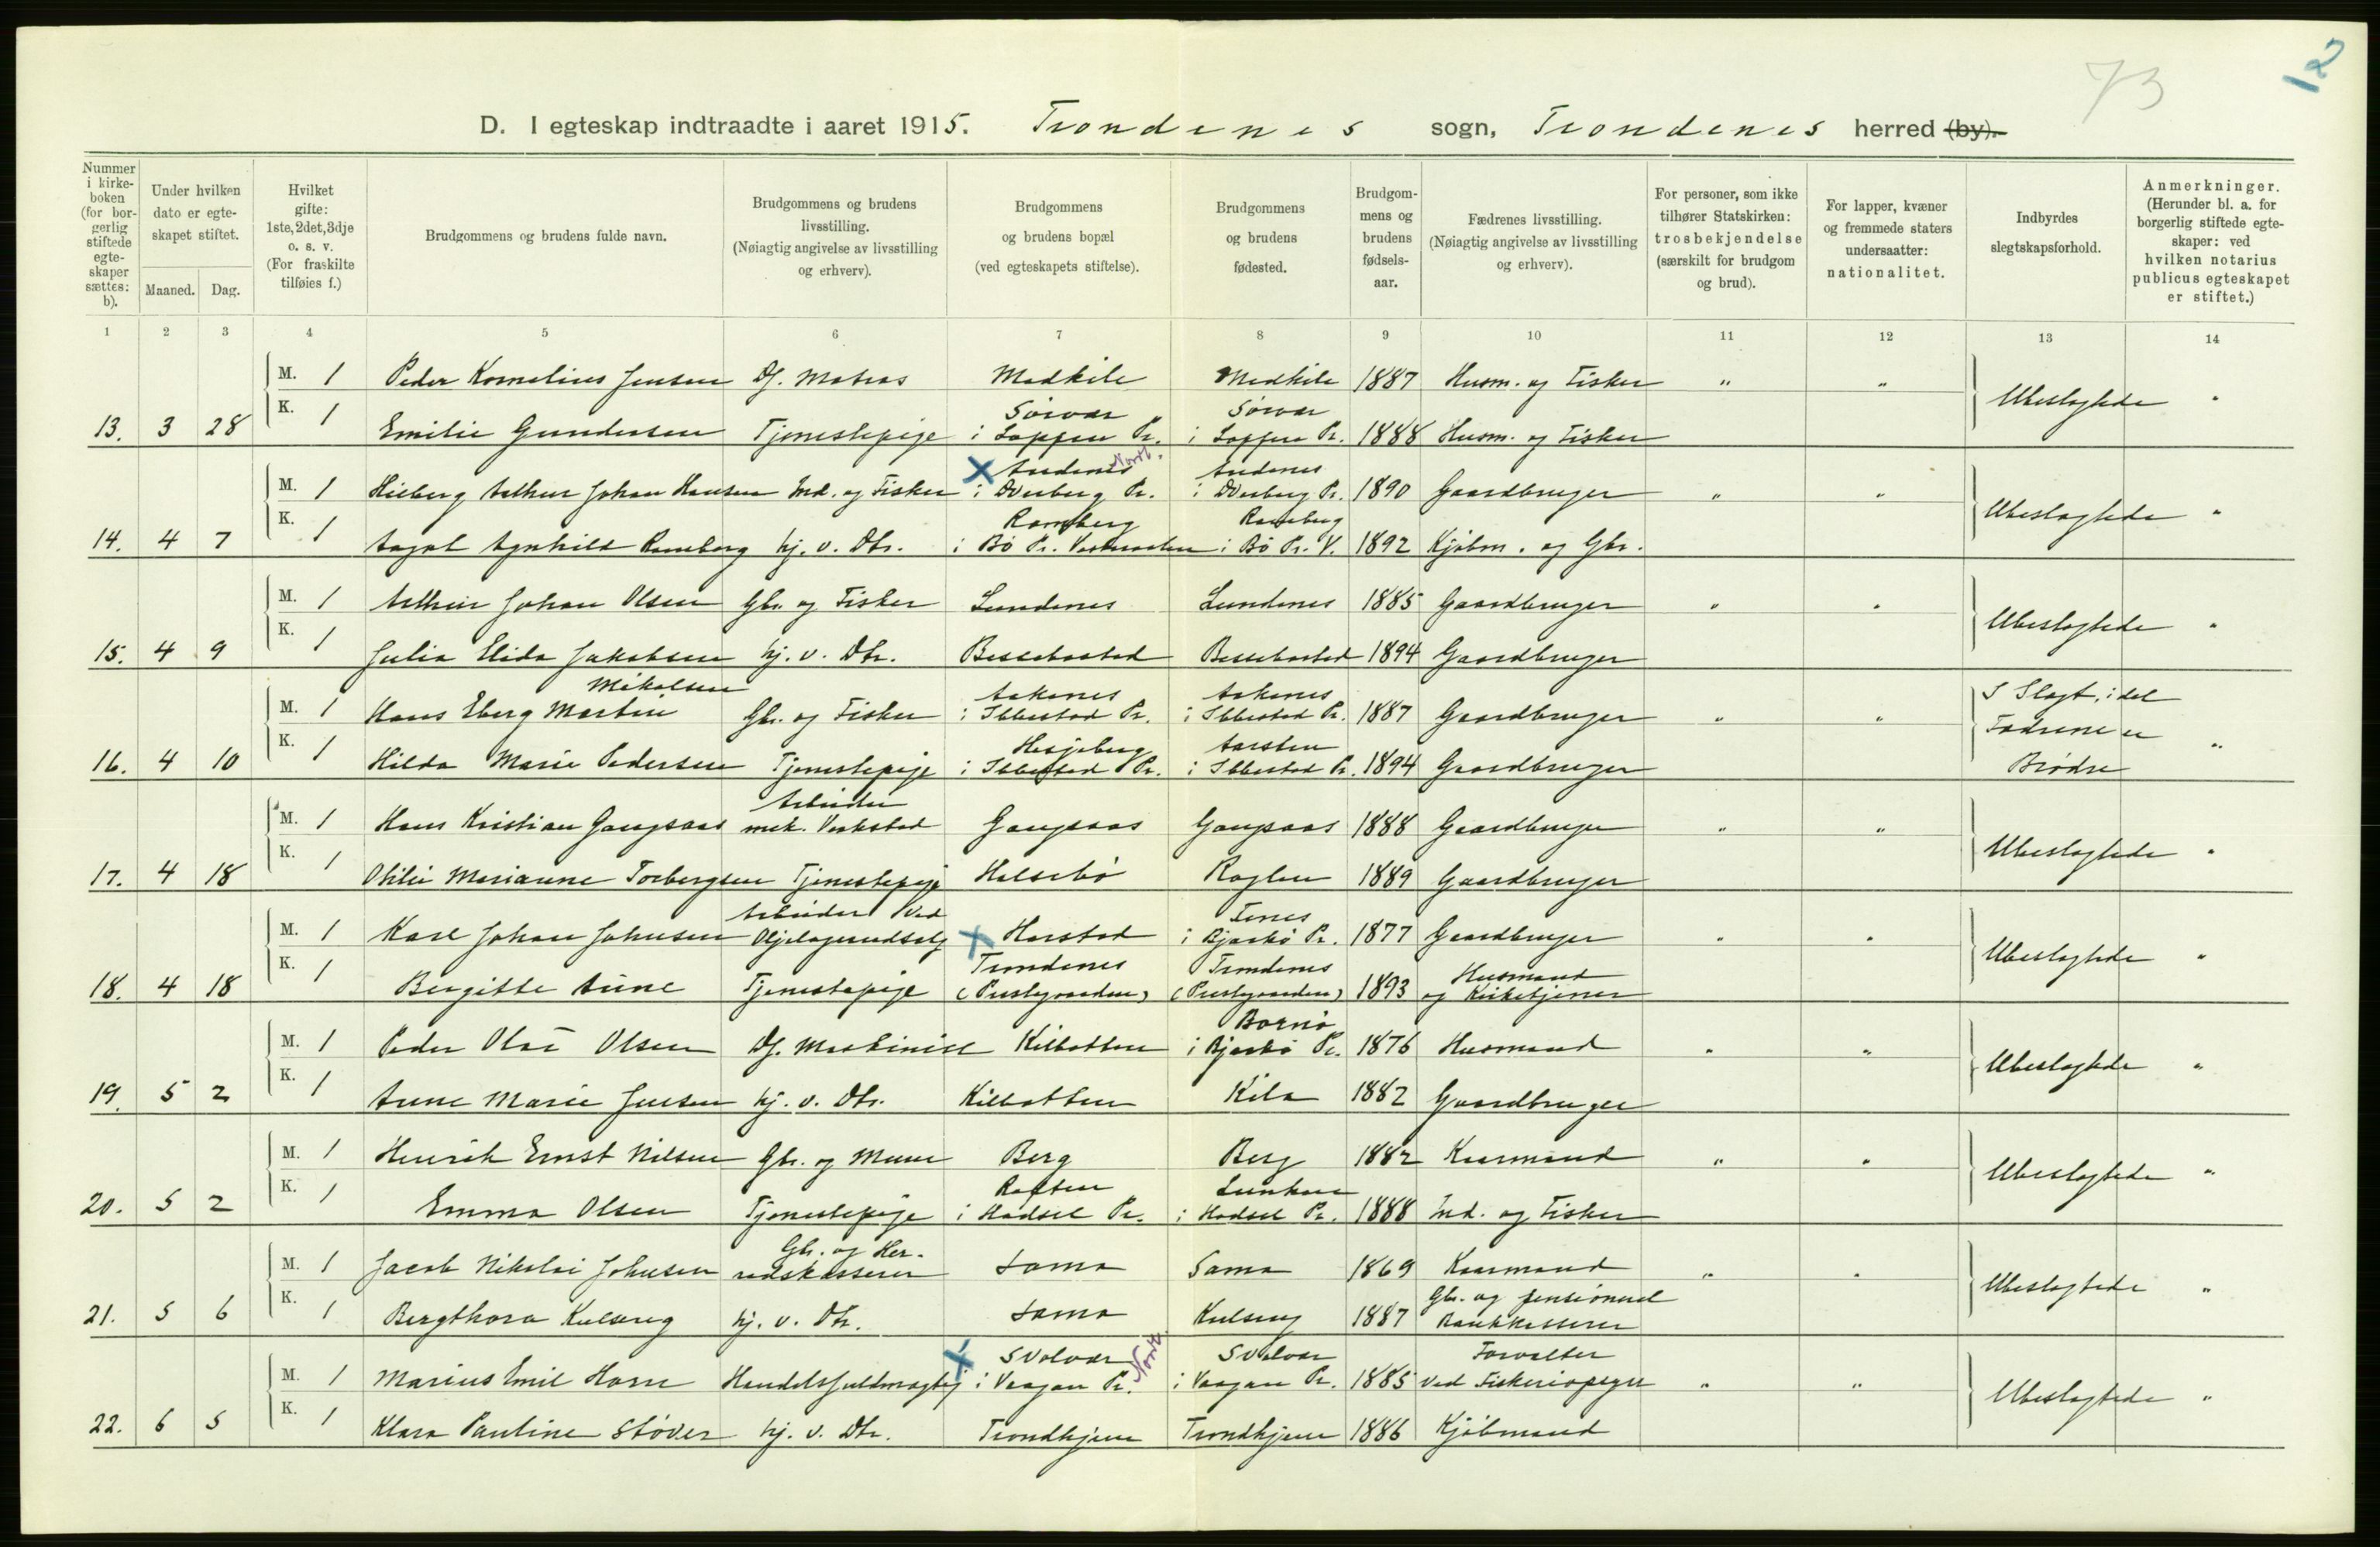 12
73
D. I egteskap indtraadte i aaret 1915. Trondenes sogn, Trondenes herred (by).
Nummer i kirkeboken (for borgerlig stiftede egteskaper sættes: b).
Under hvilken dato er egteskapet stiftet.
Maaned. Dag.
Hvilket gifte: 1ste, 2det, 3dje o. s. v. (For fraskilte tilføies f.)
Brudgommens og brudens fulde navn.
Brudgommens og brudens livsstilling. (Nøiagtig angivelse av livsstilling og erhverv).
Brudgommens og brudens bopæl (ved egteskapets stiftelse).
Brudgommens og brudens fødested.
Brudgommens og brudens fødselsaar.
Fædrenes livsstilling. (Nøiagtig angivelse av livsstilling og erhverv).
For personer, som ikke tilhører Statskirken: trosbekjendelse (særskilt for brudgom og brud).
For lapper, kvæner og fremmede staters undersaatter: nationalitet.
Indbyrdes slegtskapsforhold.
Anmerkninger. (Herunder bl. a. for borgerlig stiftede egteskaper: ved hvilken notarius publicus egteskapet er stiftet.)
1 2 3 4 5 6 7 8 9 10 11 12 13 14
M. 1 Peder Kornelius Jensen Df. Matros Medkile Medkile 1887 Husm. og Fisker " " Ubeslagtede "
13. 3 28 K. 1 Emilie Gundersen Tjenestepige Sørvær i Loppen Pr. Sørvær i Loppen Pr. 1888 Husm. og Fisker
M. 1 Arthur Johan Hansen Ind. og Fisker x Andenes i Dverberg Pr. Nordl. Andenes i Dverberg Pr. 1890 Gaardbruger " " Ubeslagtede "
14. 4 7 K. 1 Aagot Agnhild Ramberg hj. v. Dtr. Ramberg i Bø Pr. Vesteraalen Ramberg i Bø Pr. V. 1892 Kjøbm. og Gbr.
M. 1 Arthur Johan Olsen Gbr. og Fisker Lundenes Lundenes 1885 Gaardbruger " " Ubeslagtede "
15. 4 9 K. 1 Julia Elida Jakobsen hj. v. Dtr. Bessebostad Bessebostad 1894 Gaardbruger
M. 1 Hans Eberg Martin Mikalsen Gbr. og Fisker Aakenes i Ibbestad Pr. Aakenes i Ibbestad Pr. 1887 Gaardbruger " " I Slagt, i det Fædrene er Brødre "
16. 4 10 K. 1 Hilda Marie Pedersen Tjenestepige Hesjeberg i Ibbestad Pr. Aarsten i Ibbestad Pr. 1894 Gaardbruger
M. 1 Hans Kristian Gangsaas Arbeider mek. Verksted Gangsaas Gangsaas 1888 Gaardbruger " " Ubeslagtede "
17. 4 18 K. 1 Otilie Marianne Torbergsen Tjenestepige Halsebø Roglen 1889 Gaardbruger
M. 1 Karl Johan Johnsen Arbeider ved Oljelagerudsalg x Harstad Tenes i Bjarkø Pr. 1877 Gaardbruger " " Ubeslagtede "
18. 4 18 K. 1 Bergitte Aune Tjenestepige Trondenes (Prestegaarden) Trondenes (Prestegaarden) 1893 Husmand og Kirketjener
M. 1 Peder Olai Olsen Df. Maskinist Kilbotten i Bjarkø Pr. 1876 Husmand " " Ubeslagtede "
19. 5 2 K. 1 Anne Marie Jensen hj. v. Dtr. Kilbotten Kila 1882 Gaardbruger
M. 1 Henrik Ernst Nilsen Gbr. og Murer Berg Berg 1882 Kaarmand " " Ubeslagtede "
20. 5 2 K. 1 Emma Olsen Tjenestepige Raften i Hadsel Pr. i Hadsel Pr. 1888 Ind. og Fisker
M. 1 Jacob Nikolai Johnsen Gbr. og Herredskasserer Sama Sama 1869 Kaarmand " " Ubeslagtede "
21. 5 6 K. 1 Bergthora Kulseng hj. v. Dtr. Sama Kulseng 1887 Gbr. og pensioneret Bankkasserer
M. 1 Marius Emil Horn Handelsfuldmægtig x Svolvær i Vaagan Pr. Nordl. Svolvær i Vaagan Pr. 1885 Forvalter ved Fiskeriopsyn " " Ubeslagtede "
22. 6 5 K. 1 Klara Pauline Støver hj. v. Dtr. Trondhjem Trondhjem 1886 Kjøbmand